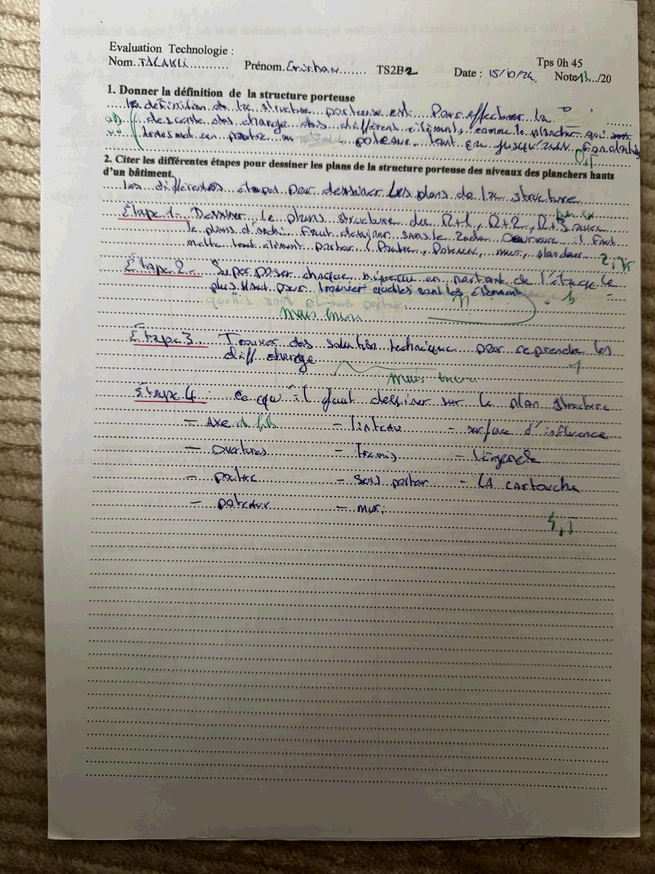 Evaluation Technologie :
Nom. Prénom. Cristian TS2B2 Date : 15/10/24 Tps 0h 45 Note /20
1. Donner la définition de la structure porteuse
La définition de la structure porteuse est Pour effectuer la
descente des charge des différent éléments, comme le plancher qui
transmet en poutre poteaux tout ça jusqu'aux Fondations
2. Citer les différentes étapes pour dessiner les plans de la structure porteuse des niveaux des planchers hauts
d'un bâtiment.
Les différentes étapes pour dessiner les plans de la structure
Étape 1 : Dessiner le plans structure du R+1, R+2, R+3
le plans d'archi Faut dessiner sans le il Faut
mettre tout élément porteur (Poutre, Poteaux, mur, plancher
Étape 2 : Superposer chaque niveau en partant de l'étage le
plus Haut pour trouver quelles sont les élément
mais encore
Étape 3 : Trouver des solution technique pour reprendre les
diff charge
mais encore
Étape 4 : ce qu'il faut dessiner sur le plan structure
- Axe - linteau - surface d'influence
- ouvertures - Tramis - légende
- poutre - sens porteur - LA cartouche
- poteaux - mur